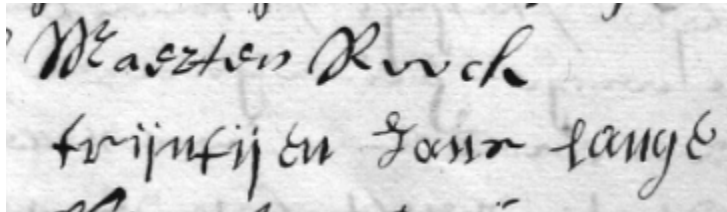 Maerten Rvvck
trijntijen Jans lange